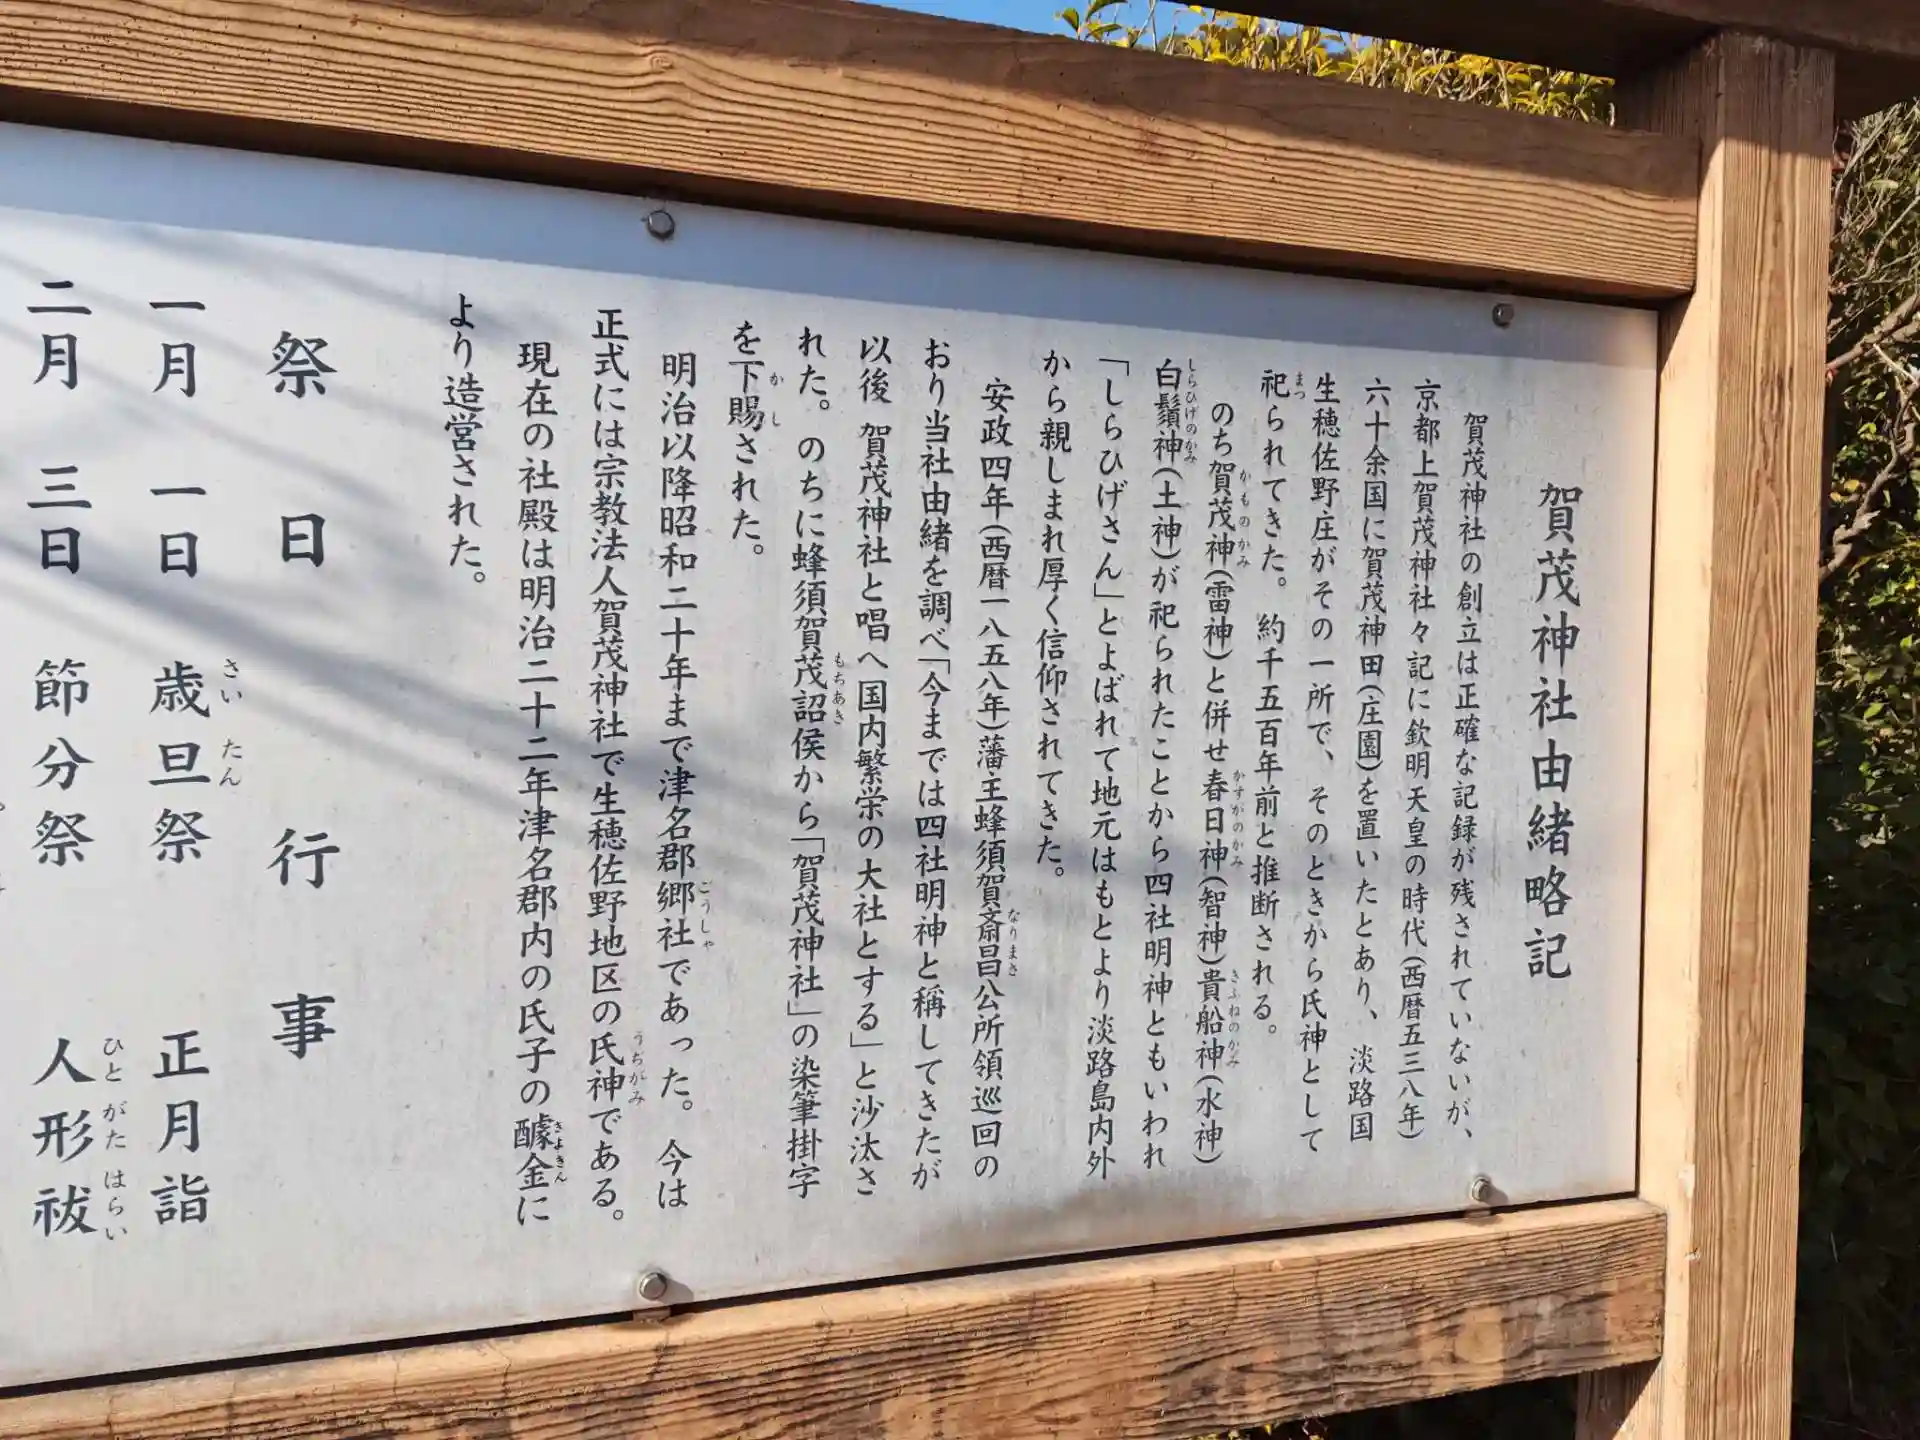 賀茂神社由緒略記
賀茂神社の創立は正確な記録が残されていないが、
京都上賀茂神社々記に欽明天皇の時代(西暦五三八年)
六十余国に賀茂神田(庄園)を置いたとあり、淡路国
生穂佐野庄がその一所で、そのときから氏神として
祀られてきた。約千五百年前と推断される。
まつ
のち賀茂神(雷神)と併せ春日神(智神)貴船神(水神)
かものかみ かすがのかみ きふねのかみ
白鬚神(土神)が祀られたことから四社明神ともいわれ
しらひげのかみ
「しらひげさん」とよばれて地元はもとより淡路島内外
から親しまれ厚く信仰されてきた。
安政四年(西暦一八五八年)藩主蜂須賀斎昌公所領巡回の
なりまさ
おり当社由緒を調べ「今までは四社明神と稱してきたが
以後 賀茂神社と唱へ国内繁栄の大社とする」と沙汰さ
れた。のちに蜂須賀茂詔侯から「賀茂神社」の染筆掛字
もちあき
を下賜された。
かし
明治以降昭和二十年まで津名郡郷社であった。今は
ごうしゃ
正式には宗教法人賀茂神社で生穂佐野地区の氏神である。
うぢがみ
現在の社殿は明治二十二年津名郡内の氏子の醵金に
きよきん
より造営された。
祭日 行事
一月 一日 歳旦祭 正月詣
さいたん
二月 三日 節分祭 人形祓
ひとがたはらい